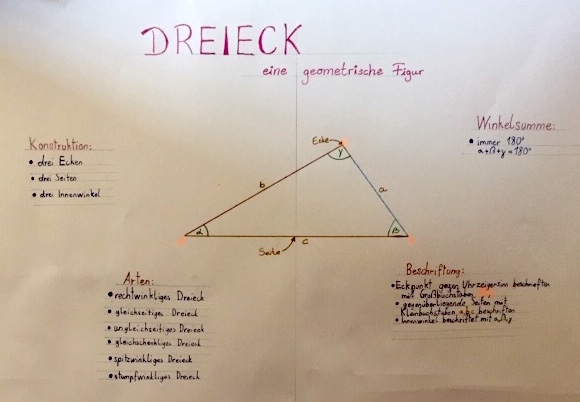 DREIECK
eine geometrische Figur
Konstruktion:
• drei Ecken
• drei Seiten
• drei Innenwinkel
Winkelsumme:
• immer 180°
α+β+γ=180°
Ecke
γ
b
a
α
β
Seite
c
Arten:
• rechtwinkliges Dreieck
• gleichseitiges Dreieck
• ungleichseitiges Dreieck
• gleichschenkliges Dreieck
• spitzwinkliges Dreieck
• stumpfwinkliges Dreieck
Beschriftung:
• Eckpunkt gegen Uhrzeigersinn beschriften
mit Großbuchstaben
• gegenüberliegende Seiten mit
Kleinbuchstaben a,b,c beschriften
• Innenwinkel beschriftet mit α,β,γ